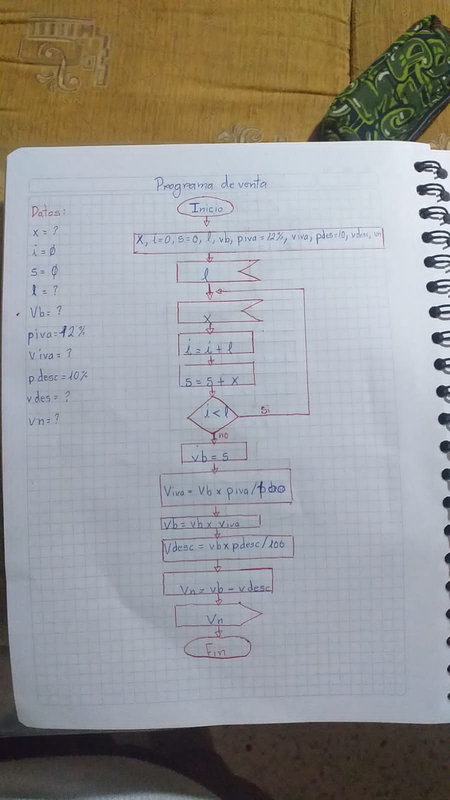 Programa de venta
Datos:
x = ?
i = Ø
s = Ø
l = ?
Vb = ?
piva = 12%
Viva = ?
p desc = 10%
v des = ?
vn = ?
Inicio
X, i=0, s=0, l, vb, piva=12%, viva, pdes=10, vdesc, vn
l
x
i = i + l
s = s + x
i < l
Si
no
vb = s
Viva = Vb x piva/100
Vb = vb x viva
Vdesc = vb x pdesc/100
Vn = vb - vdesc
Vn
Fin